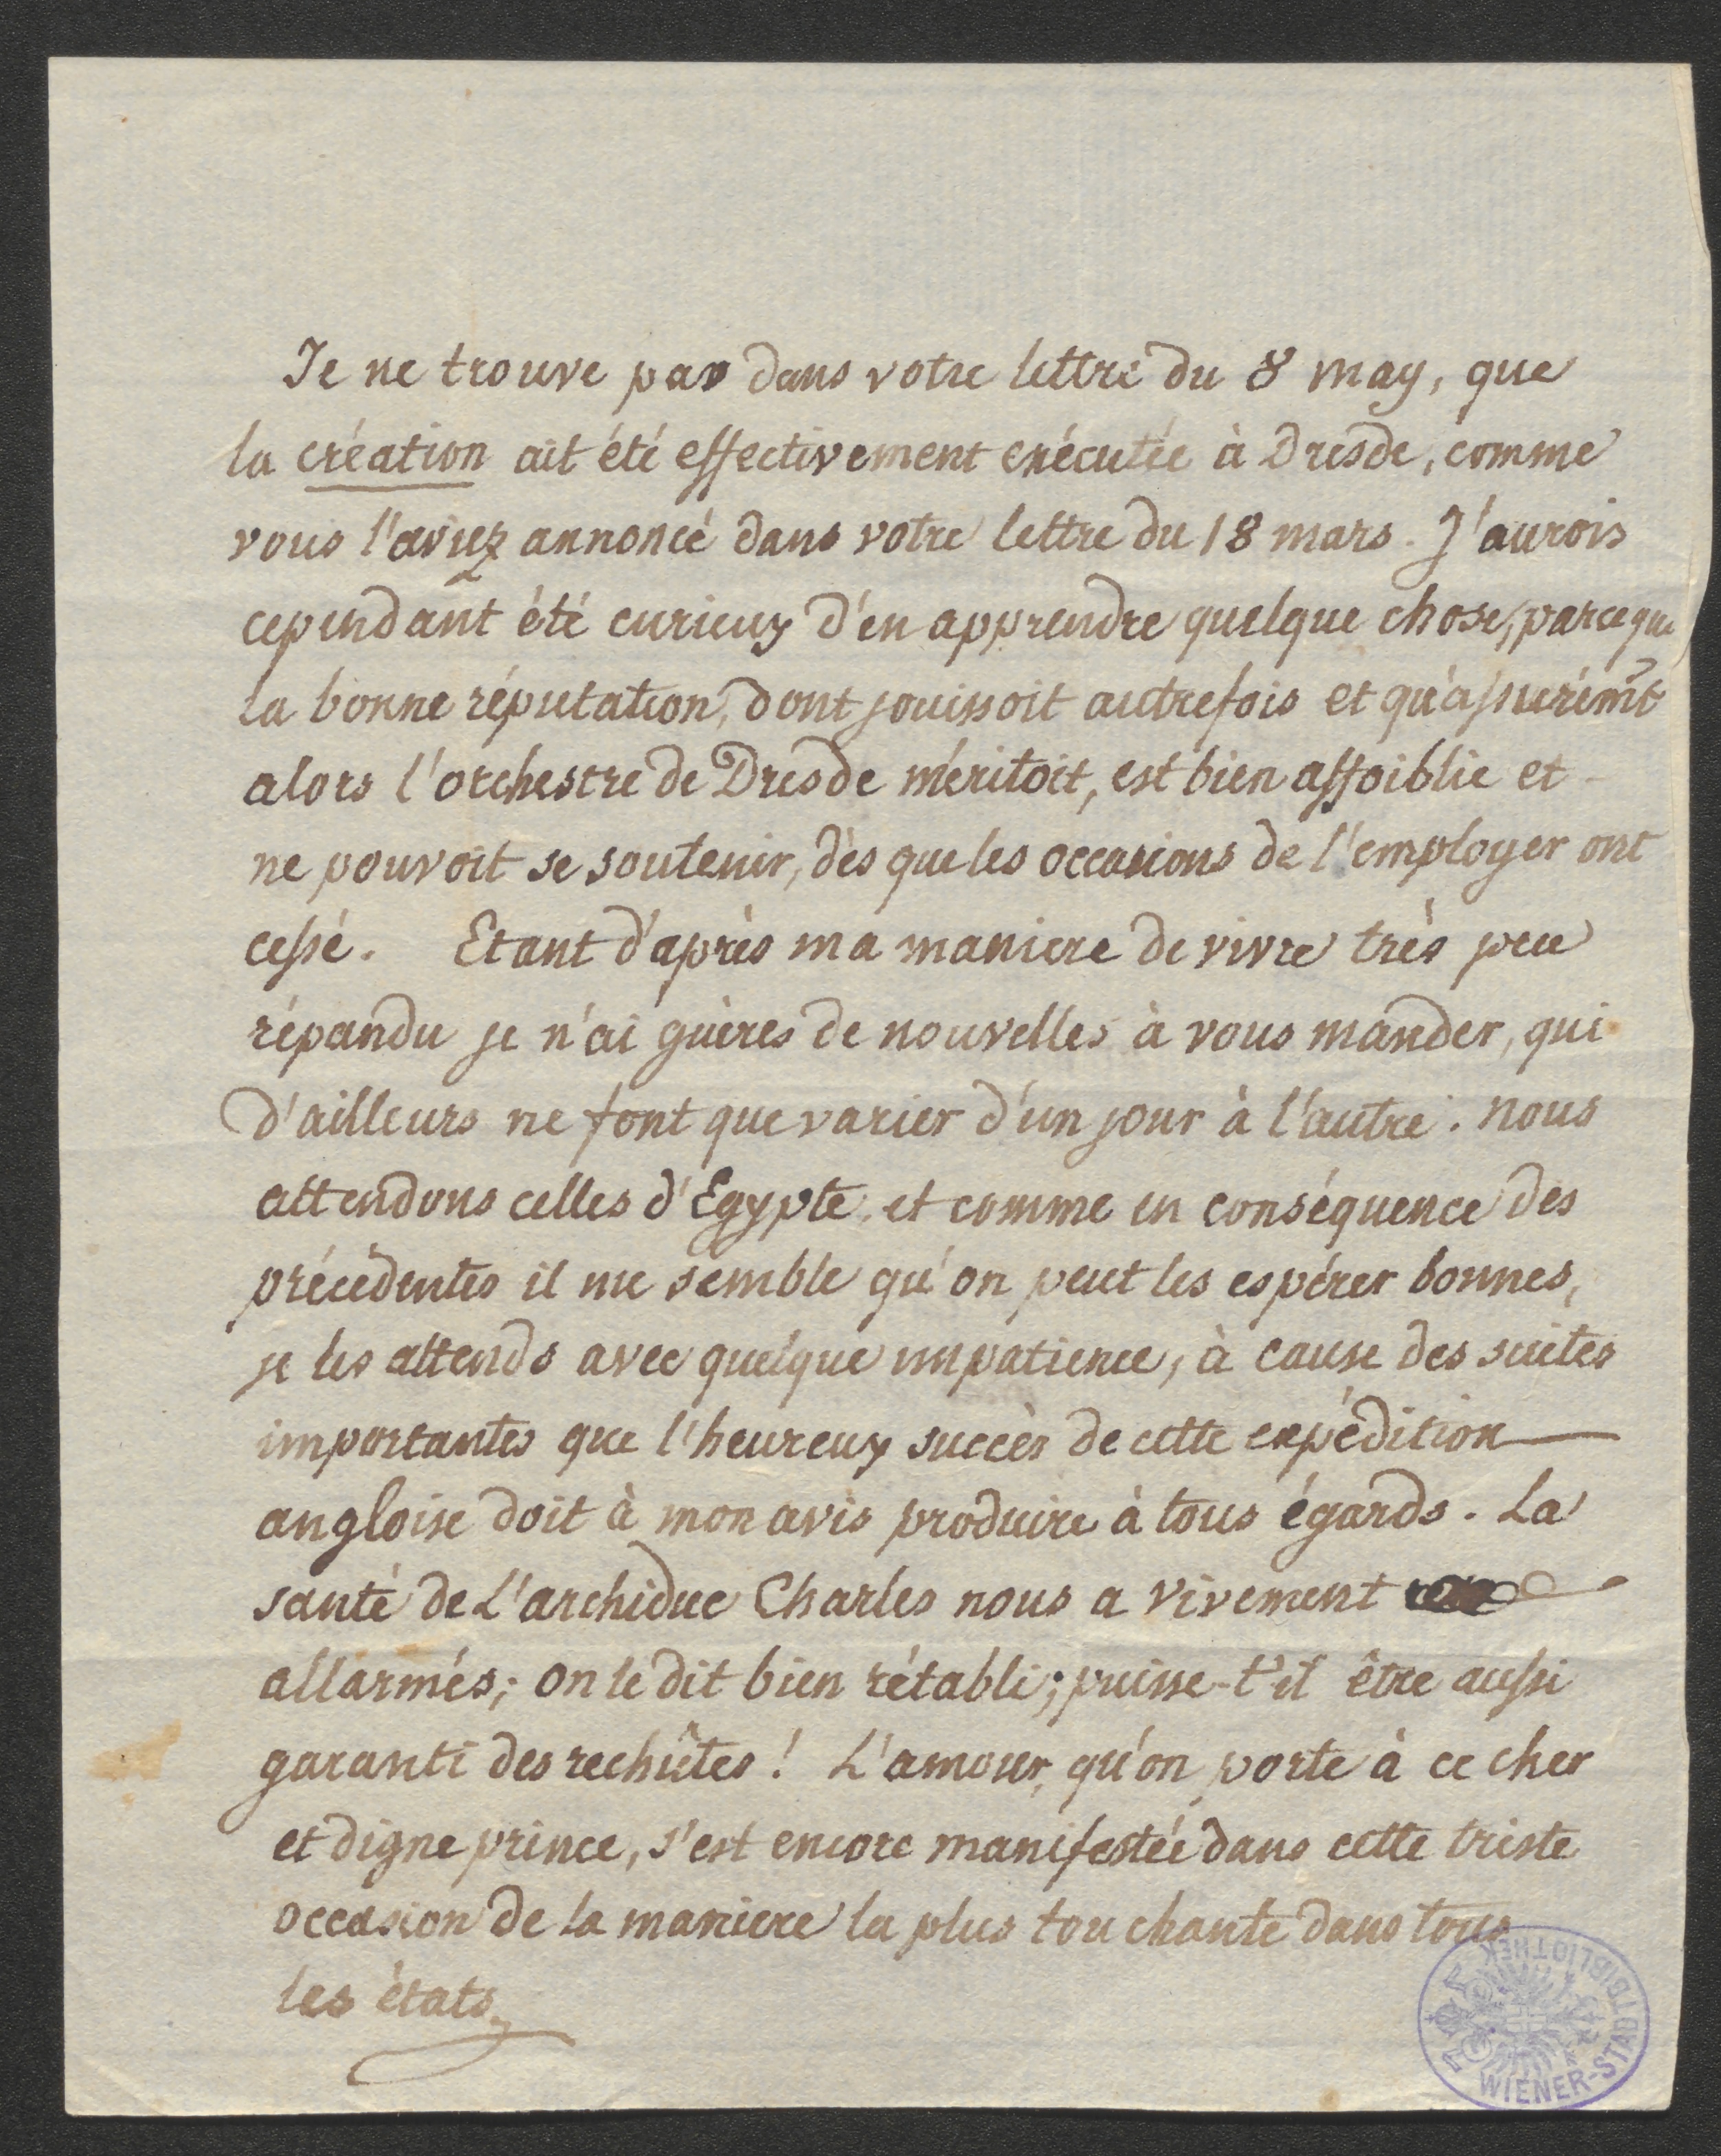 Je ne trouve pas dans votre lettre du 8 may, que
la création ait été effectivement exécutée à Dresde, comme
vous l'aviez annoncé dans votre lettre du 18 mars. J'aurois
cependant été curieux d'en apprendre quelque chose, parceque
la bonne réputation, dont jouissoit autrefois et qu'assurémt
alors l'orchestre de Dresde méritoit, est bien affoiblie et
ne pouvoit se soutenir, dès que les occasions de l'employer ont
cessé. Etant d'après ma maniere de vivre très peu
répandu je n'ai guères de nouvelles à vous mander, qui
d'ailleurs ne font que varier d'un jour à l'autre. nous
attendons celles d'Egypte, et comme en conséquence des
précédentes il me semble qu'on peut les espérer bonnes,
je les attends avec quelque impatience, à cause des suites
importantes que l'heureux succès de cette expédition
angloise doit à mon avis produire à tous égards. La
santé de L'archiduc Charles nous a vivement
allarmés; on le dit bien rétabli; puisse-t'il être aussi
garanti des rechûtes! L'amour, qu'on porte à ce cher
et digne prince, s'est encore manifestée dans cette triste
occasion de la maniere la plus touchante dans tous
les états.
WIENER-STADTBIBLIOTHEK